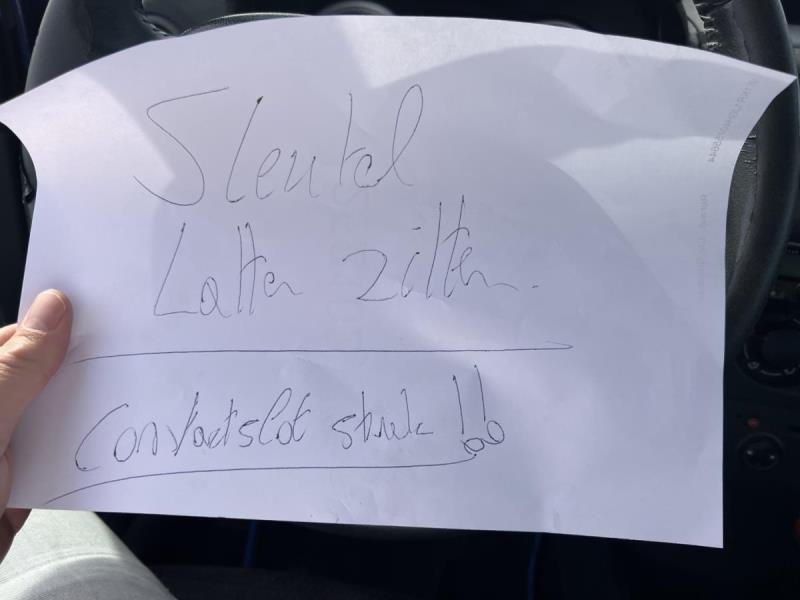 Sleutel
Latten zitten.
Contactslot stuk!!